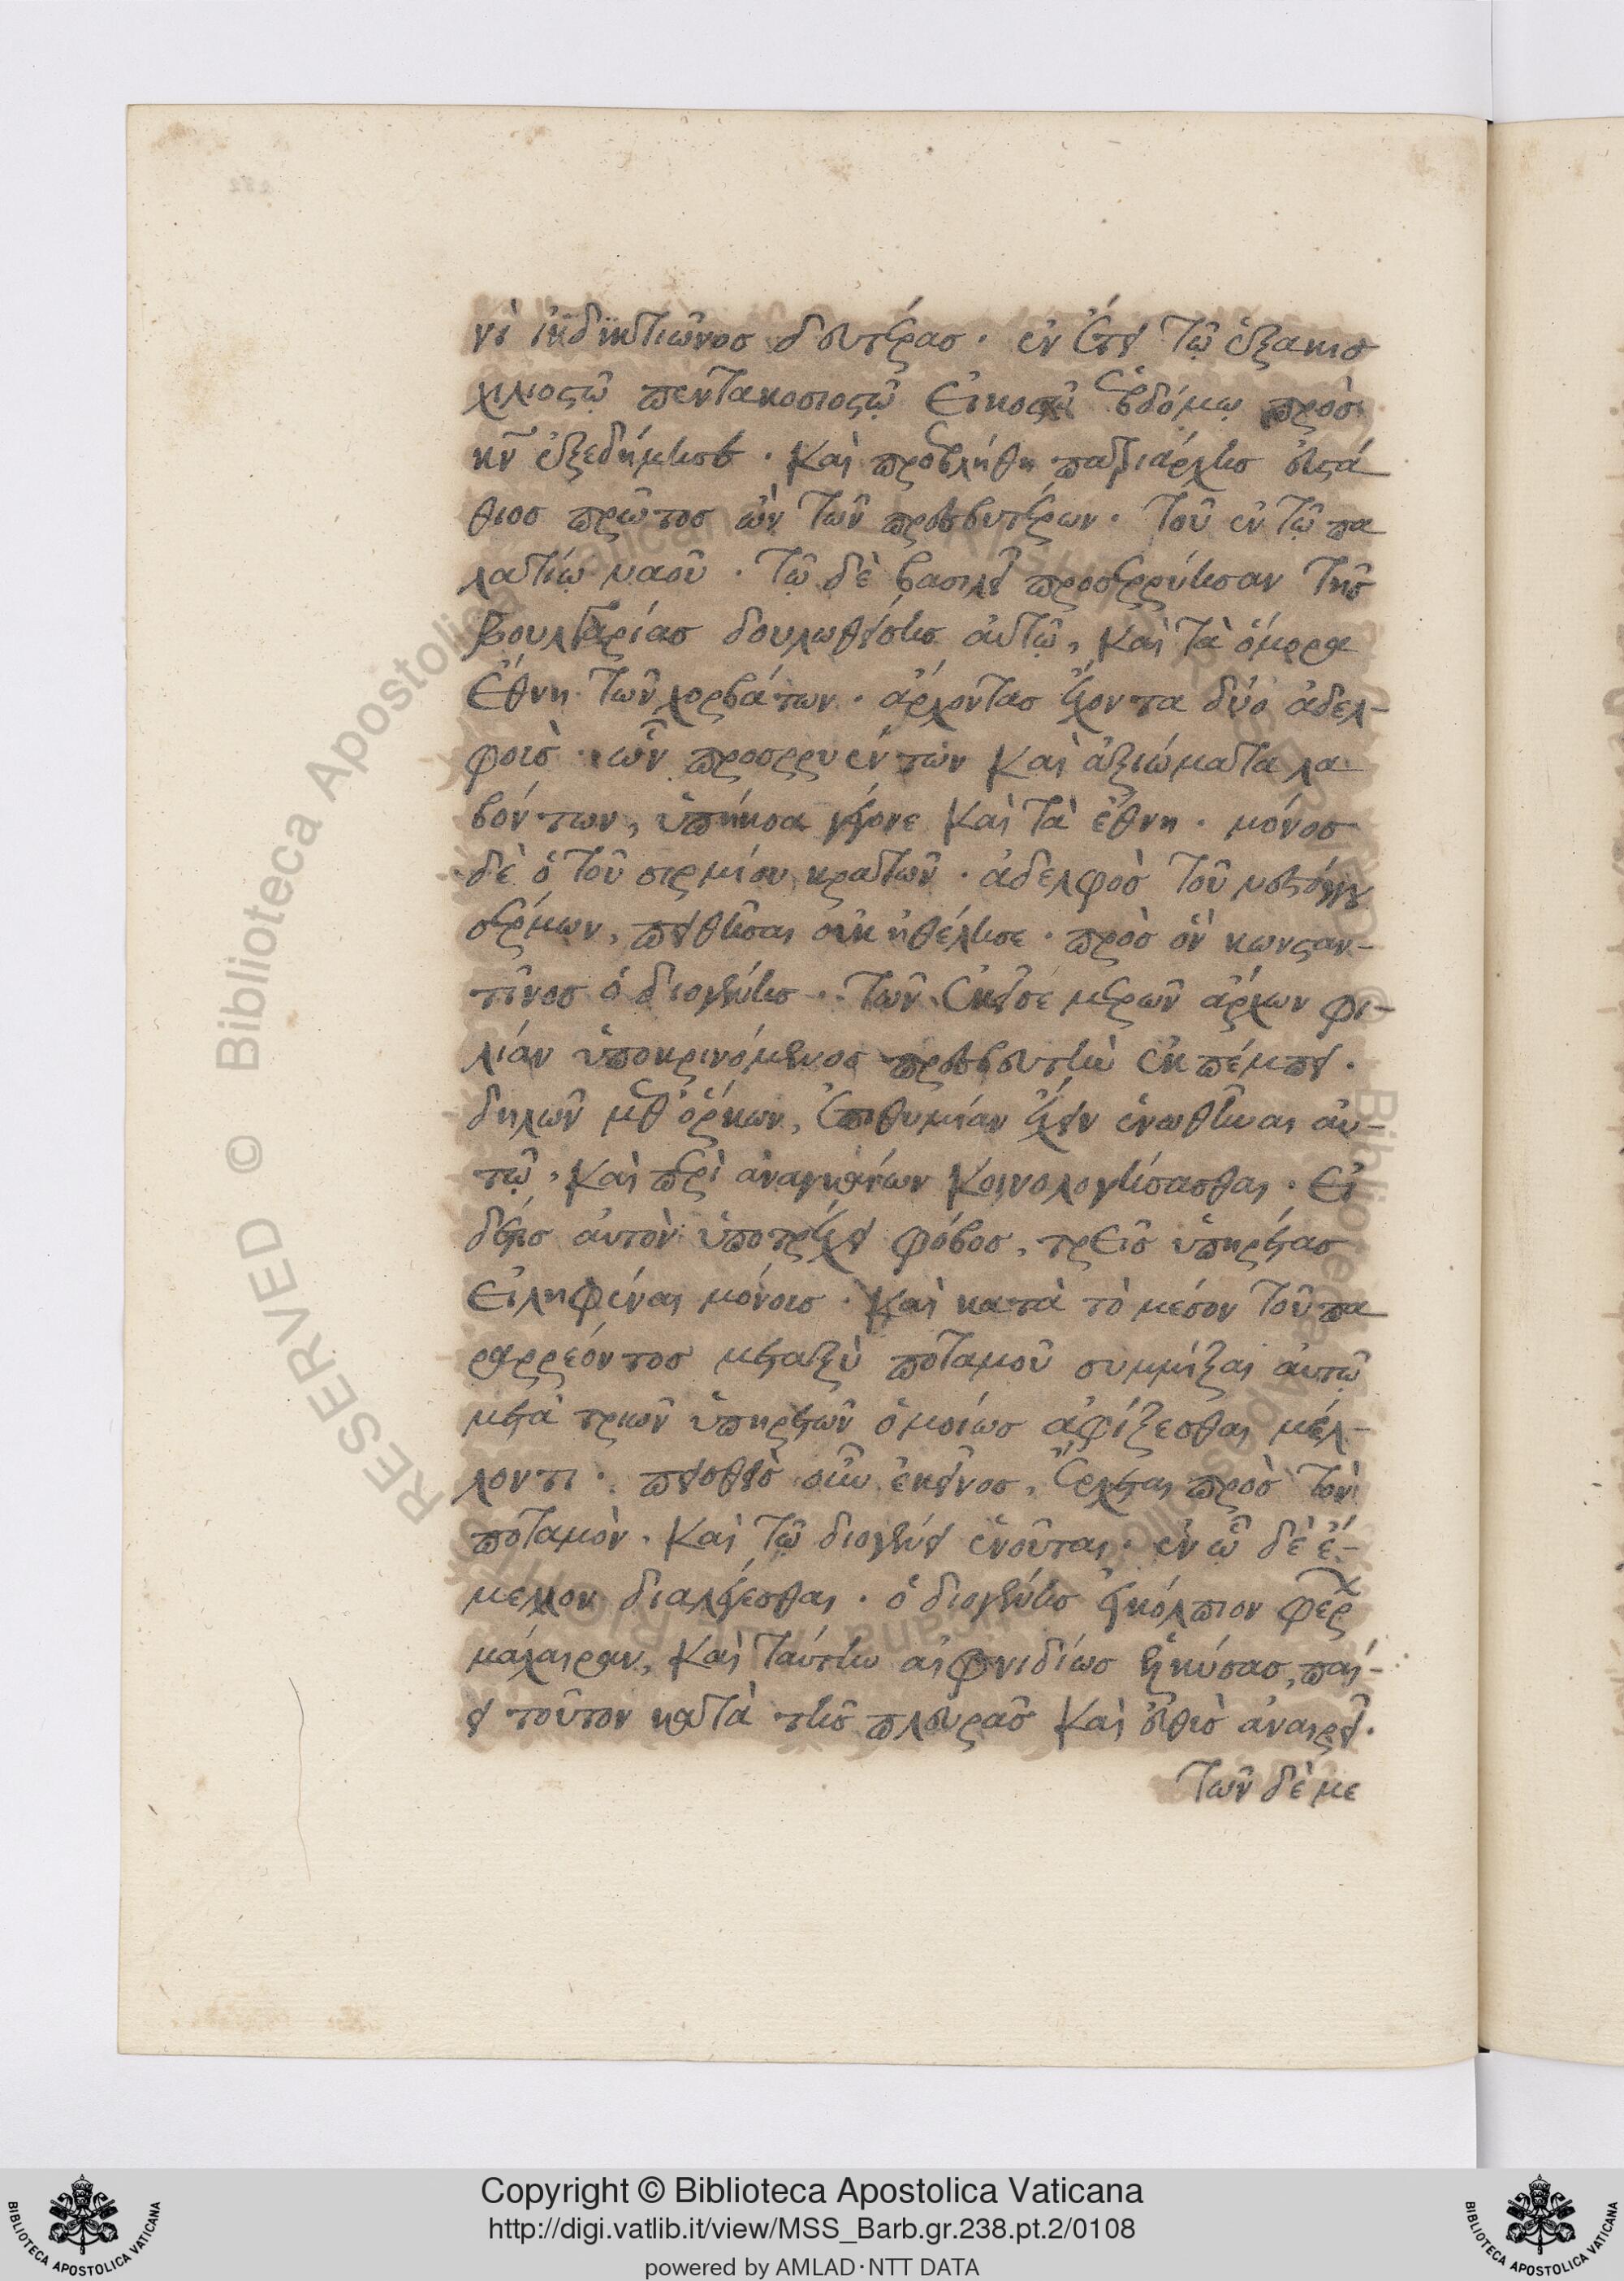 νὶ ἰνδικτιῶνος δευτέρας. ἐν ἔτει τῷ ἑξακισ
χιλιοστῷ πεντακοσιοστῷ εἰκοστῷ ἑβδόμῳ πρὸς
κν̅ ἐξεδήμησε. καὶ προεβλήθη πατριάρχης εὐστά
θιος πρῶτος ὢν τῶν πρεσβυτέρων. τοῦ ἐν τῷ πα
λατίῳ ναοῦ. τῷ δὲ βασιλεῖ προσερρύησαν τῆς
βουλγαρίας δουλωθείσης αὐτῷ, καὶ τὰ ὅμορα
ἔθνη τῶν χορβάτων. ἄρχοντας ἔχοντα δύο ἀδελ-
φοὺς. ὧν προσρυέντων καὶ ἀξιώματα λα
βόντων, ὑπήκοα γέγονε καὶ τὰ ἔθνη. μόνος
δὲ ὁ τοῦ σιρμίου κρατῶν. ἀδελφὸς τοῦ νεστόγγου
σέρμων, πεισθῆναι οὐκ ἠθέλησε. πρὸς ὃν κωνσταν-
τῖνος ὁ διογένης. τῶν ἐκεῖσε μερῶν ἄρχων φι-
λίαν ὑποκρινόμενος πρεσβευτὴν ἐκπέμπει.
δηλῶν μεθ' ὅρκων, ἐπιθυμίαν ἔχειν ἑνωθῆναι αὐ-
τῷ, καὶ περὶ ἀναγκαίων κοινολογήσασθαι. εἰ
δέ τις αὐτὸν ὑποτρέχει φόβος, τρεῖς ὑπηρέτας
εἰληφέναι μόνους. καὶ κατὰ τὸ μέσον τοῦ πα
ραρρέοντος μεταξὺ ποταμοῦ συμμίξαι αὐτῷ
μετὰ τριῶν ὑπηρετῶν ὁμοίως ἀφίξεσθαι μέλ-
λοντι. πεισθεὶς οὖν ἐκεῖνος, ἔρχεται πρὸς τὸν
ποταμὸν. καὶ τῷ διογένει ἑνοῦται. ἐν ᾧ δὲ ἔ-
μελλον διαλέγεσθαι. ὁ διογένης ἐγκόλπιον φέρων
μάχαιραν, καὶ ταύτην αἰφνιδίως ἑλκύσας, παί-
ει τοῦτον κατὰ τῆς πλευρᾶς καὶ εὐθὺς ἀναιρεῖ.
τῶν δὲ με